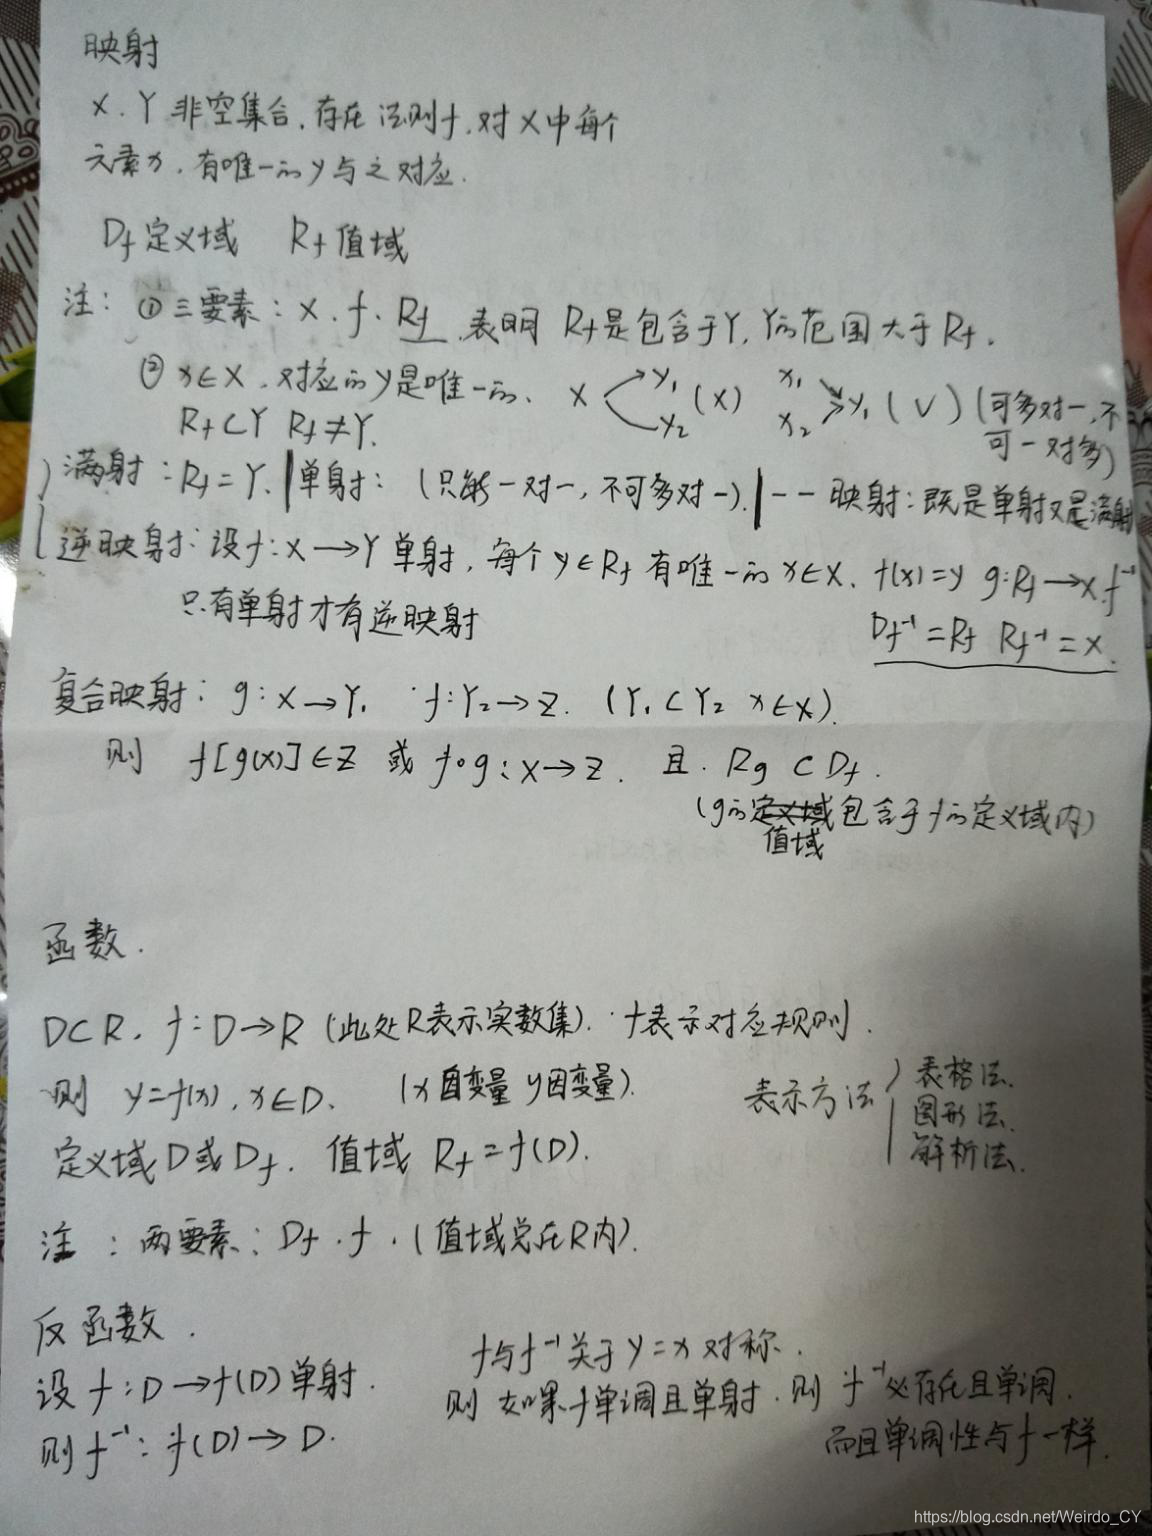 映射
X. Y 非空集合, 存在法则f, 对X中每个
元素x, 有唯一的y与之对应.
Df定义域 Rf值域
注: ①三要素: X. f. Rf 表明 Rf是包含于Y, Y的范围大于Rf.
② x∈X, 对应的y是唯一的. X y₁ y₂ (X) x₁ x₂ y₁ (√) (可多对一, 不
可一对多)
Rf⊂Y Rf≠Y.
满射: Rf=Y. |单射: (只能一对一, 不可多对一). |一一映射: 既是单射又是满射
逆映射: 设f: X→Y单射, 每个y∈Rf 有唯一的x∈X. f(x)=y g: Rf→X. f⁻¹
只有单射才有逆映射
Df⁻¹=Rf Rf⁻¹=X.
复合映射: g: X→Y₁ f: Y₂→Z. (Y₁⊂Y₂ x∈X).
则 f[g(x)]∈Z 或 f∘g: X→Z. 且. Rg⊂Df.
(g的定义域包含于f的定义域内)
值域
函数.
D⊂R, f: D→R (此处R表示实数集). f表示对应规则.
则 y=f(x), x∈D. (x自变量 y因变量).
表示方法
表格法.
图形法.
解析法.
定义域D或Df. 值域 Rf=f(D).
注: 两要素: Df. f. (值域总在R内).
反函数.
设 f: D→f(D)单射.
则f⁻¹: f(D)→D.
f与f⁻¹关于y=x对称.
则 如果f单调且单射. 则 f⁻¹必存在且单调.
而且单调性与f一样.
https://blog.csdn.net/Weirdo_CY